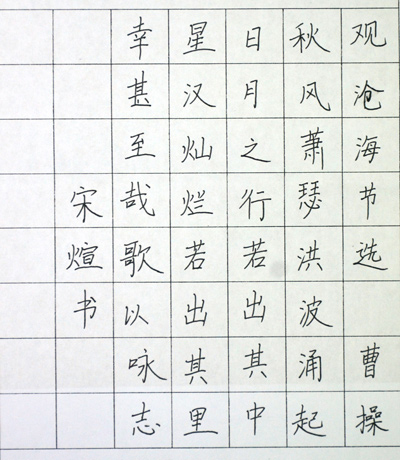 观沧海节选 曹操
秋风萧瑟洪波涌起
日月之行若出其中
星汉灿烂若出其里
幸甚至哉歌以咏志
宋煊书